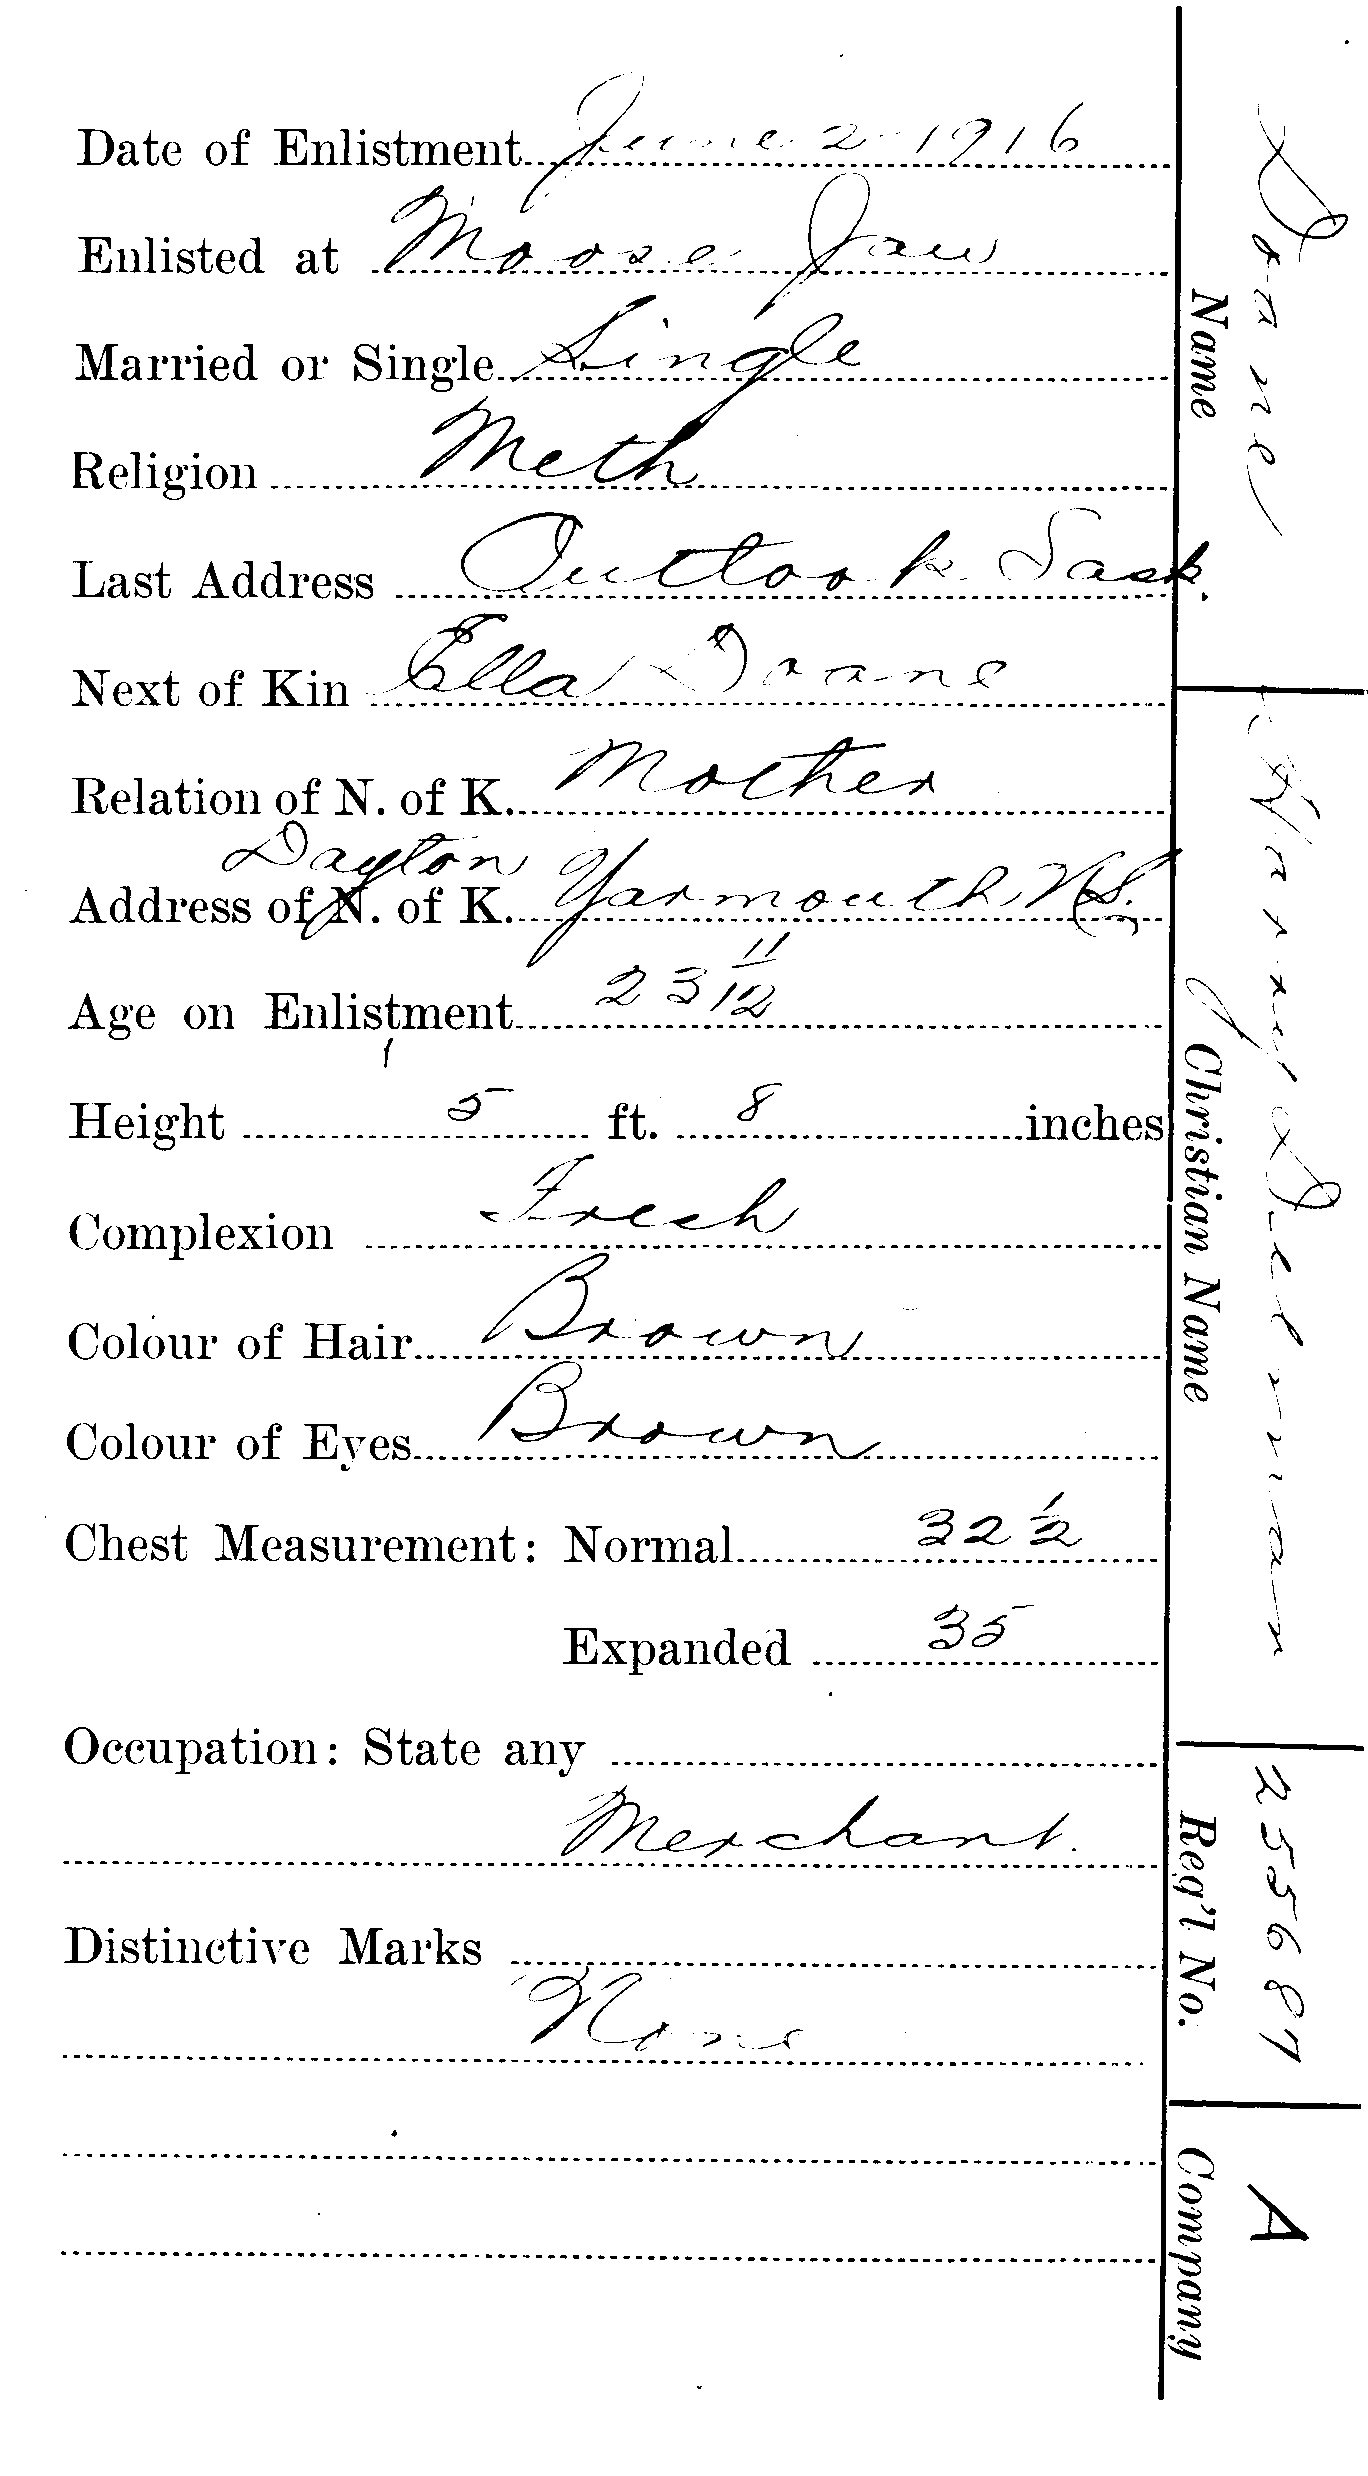 Date of Enlistment June 2 1916
Enlisted at Moose Jaw
Married or Single Single
Religion Meth
Last Address Outlook Sask.
Next of Kin Ella Doane
Relation of N. of K. Mother
Dayton
Address of N. of K. Yarmouth N.S.
Age on Enlistment 23 11/12
Height 5 ft. 8 inches
Complexion Fresh
Colour of Hair Brown
Colour of Eyes Brown
Chest Measurement: Normal 32 1/2
Expanded 35
Occupation: State any
Merchant.
Distinctive Marks
None
Doane
Name
Harvey
Christian Name
255687
Reg'l No.
A
Company